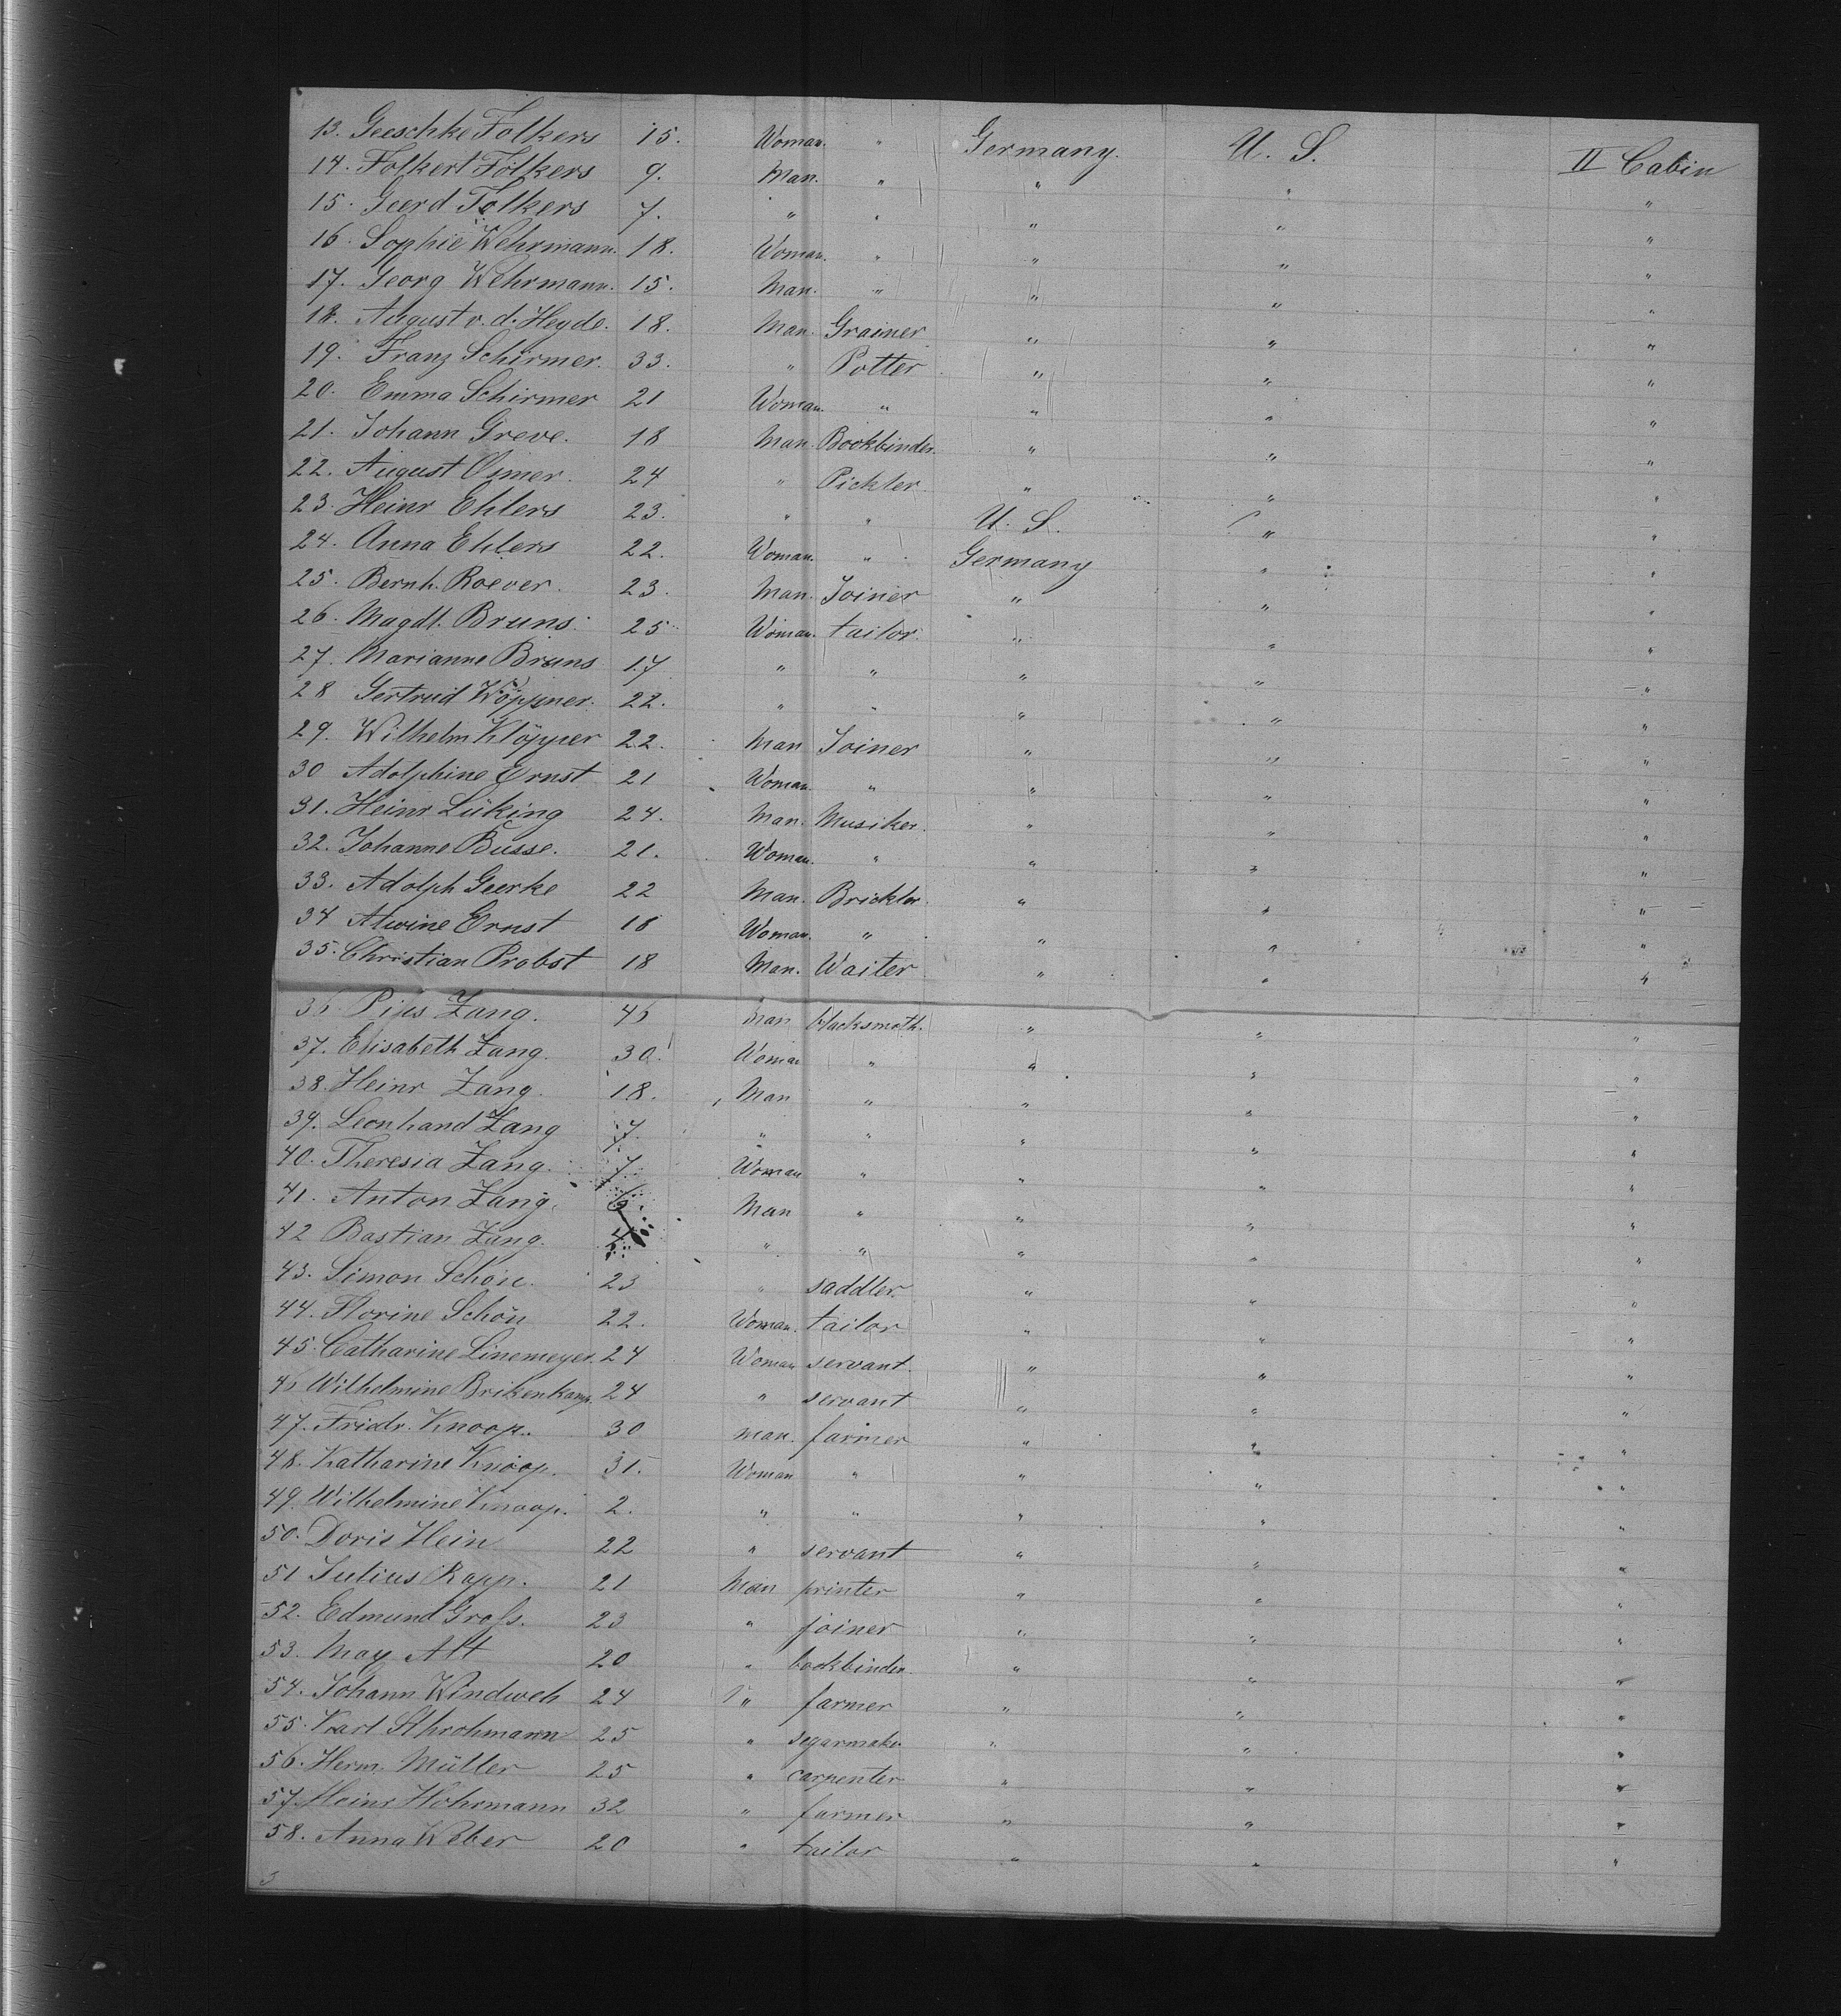 13. Geeschke Folkers 15. Woman. " Germany. U. S. II Cabin
14. Folkert Folkers 9. Man. " " " "
15. Geerd Folkers 7. " " " " "
16. Sophie Wehrmann. 18. Woman. " " " "
17. Georg Wehrmann. 15. Man. " " " "
18. August v. d. Heyde. 18. Man. Grainer. " " "
19. Franz Schirmer. 33. " Potter " " "
20. Emma Schirmer 21 Woman. " " " "
21. Johann Greve. 18 Man. Bookbinder. " " "
22. August 24 " Pickler. " " "
23. Heinr Ehlers 23. " " U. S. " "
24. Anna Ehlers 22. Woman. " Germany " "
25. Bernh. Roever. 23. Man. Joiner " " "
26. Magdl. Bruns. 25 Woman. tailor. " " "
27. Marianne Bruns 17 " " " " "
28 Gertrud Wöppner. 22. " " " " "
29. Wilhelm Klöpper 22. Man Joiner " " "
30 Adolphine Ernst 21 Woman. " " " "
31. Heinr Lüking 24. Man. Musiker. " " "
32. Johanne Busse. 21. Woman. " " " "
33. Adolph Geerke 22 Man. Brickler. " " "
34 Alwine Ernst 18 Woman. " " " "
35. Christian Probst 18 Man. Waiter " " "
36 Pius Zang. 46 Man blacksmoth. " " "
37. Elisabeth Zang. 30. Woman " " " "
38. Heinr Zang. 18. Man " " " "
39. Leonhand Zang 7. " " " " "
40. Theresia Zang. 7. Woman " " " "
41. Anton Zang. 6. Man " " " "
42 Bastian Zang. 4 " " " " "
43. Simon Schön. 23 " saddler. " " "
44. Florine Schön 22. Woman. tailor " " "
45. Catharine Linemeyer. 24 Woman servant. " " "
46 Wilhelmine Brikenkamp. 24 " servant " " "
47. Fridr. Knoop. 30 man. farmer " " "
48. Katharine Knoop. 31. Woman " " " "
49. Wilhelmine Knoop. 2. " " " " "
50. Doris Hein 22 " servant " " "
51 Julius Rapp. 21 Man printer " " "
52. Edmund Groſs. 23 " joiner " " "
53. May Alt 20 " bookbinder. " " "
54. Johann Windweh 24 " farmer " " "
55. Karl Sthrohmann 25 " segarmaker " " "
56. Herm. Müller 25 " carpenter " " "
57. Heinr Hohrmann 32 " farmer " " "
58. Anna Weber 20 " tailor " " "